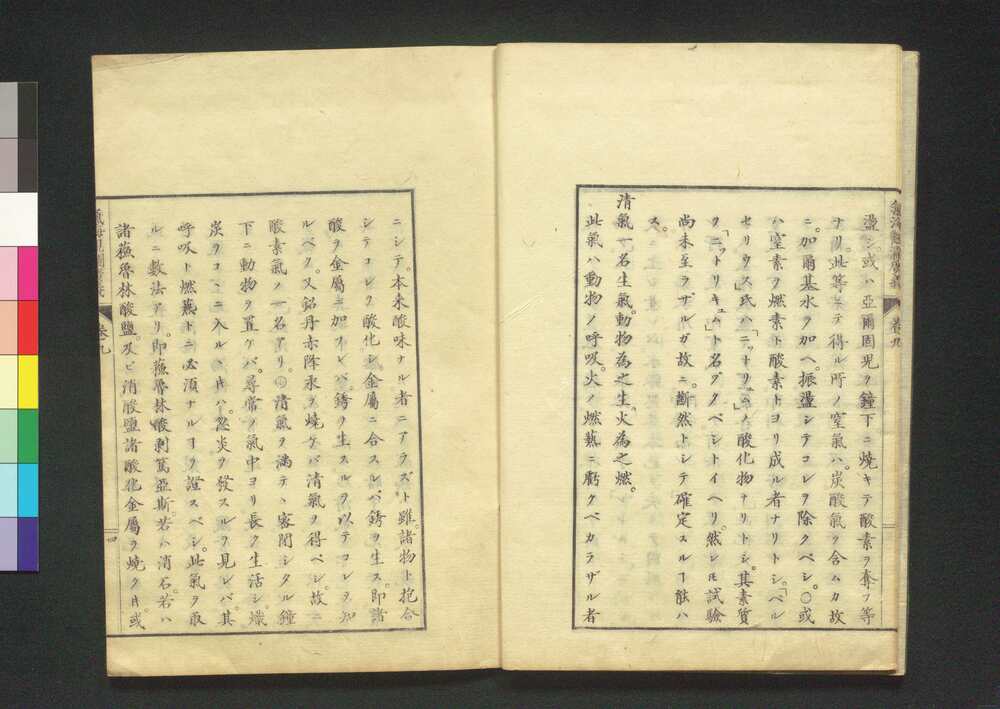 盪シ。或ハ亞爾固児ヲ鐘下ニ焼キテ酸素ヲ奪フ等
ナリ。此等ニテ得ル所ノ窒氣ハ。炭酸氣ヲ含ムカ故
ニ。加爾基水ヲ加ヘ。振盪シテコレヲ除クベシ。〇或
ハ窒素ヲ燃素ト酸素トヨリ成ル者ナリトシ。「ベル
セリウス」氏ハ「ニットリキュム」ノ酸化物ナリトシ。其素質
ヲ「ニットリキュム」ト名ヅクベシトイヘリ。然シ𪜈試驗
尚未至ラザルガ故ニ。斷然トシテ確定スルヿ能ハ
ズ。
清氣 一名生氣。動物為之生。火為之燃。
此氣ハ動物ノ呼吸。火ノ燃爇ニ虧クベカラザル者
卷九
ニシテ。本来酸味ナル者ニアラズト雖。諸物ト抱合
シテコレヲ酸化シ。金屬ニ合スレバ。銹ヲ生ス。即諸
酸ヲ金屬ニ加フレバ。銹ヲ生スルヲ以テコレヲ知
ルベク。又鉛丹赤降汞ヲ燒ケバ清氣ヲ得ベシ。故ニ
酸素氣ノ一名アリ。〇清氣ヲ満テヽ密閉シタル鐘
下ニ動物ヲ置ケバ。尋常ノ氣中ヨリ長ク生活シ。熾
炭ヲコヽニ入ルヽ𪜈ハ。忽炎ヲ發スルヲ見レバ。其
呼吸ト燃爇トニ必須ナルヿヲ證スベシ。此氣ヲ取
ルニ數法アリ。即蕪魯林酸剥篤亞斯。若ハ消石。若ハ
諸蕪魯林酸鹽及ビ消酸鹽諸酸化金屬ヲ燒ク𪜈。或
卷九
四